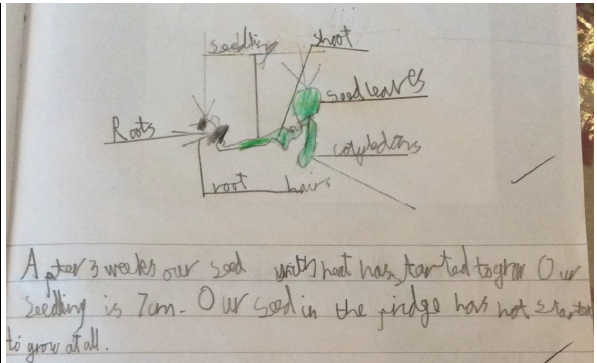 seedling
shoot
seed leaves
Roots
cotyledons
root hairs
After 3 weeks our seed with heat has started to grow Our
Seedling is 7cm. Our seed in the fridge has not started
to grow at all.